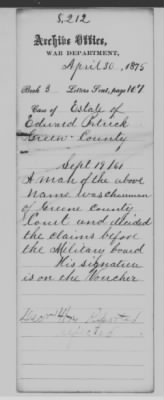 8,212
Archive Office,
WAR DEPARTMENT,
April 30, 1875
Book 3 Letters Sent, page 107
Case of Estate of
Edward Patrick
Green County
Sept 19/61
A man of the above
name was chairman
of Greene County
Court and decided
the claims before
the Military board
His signature
is on the Voucher